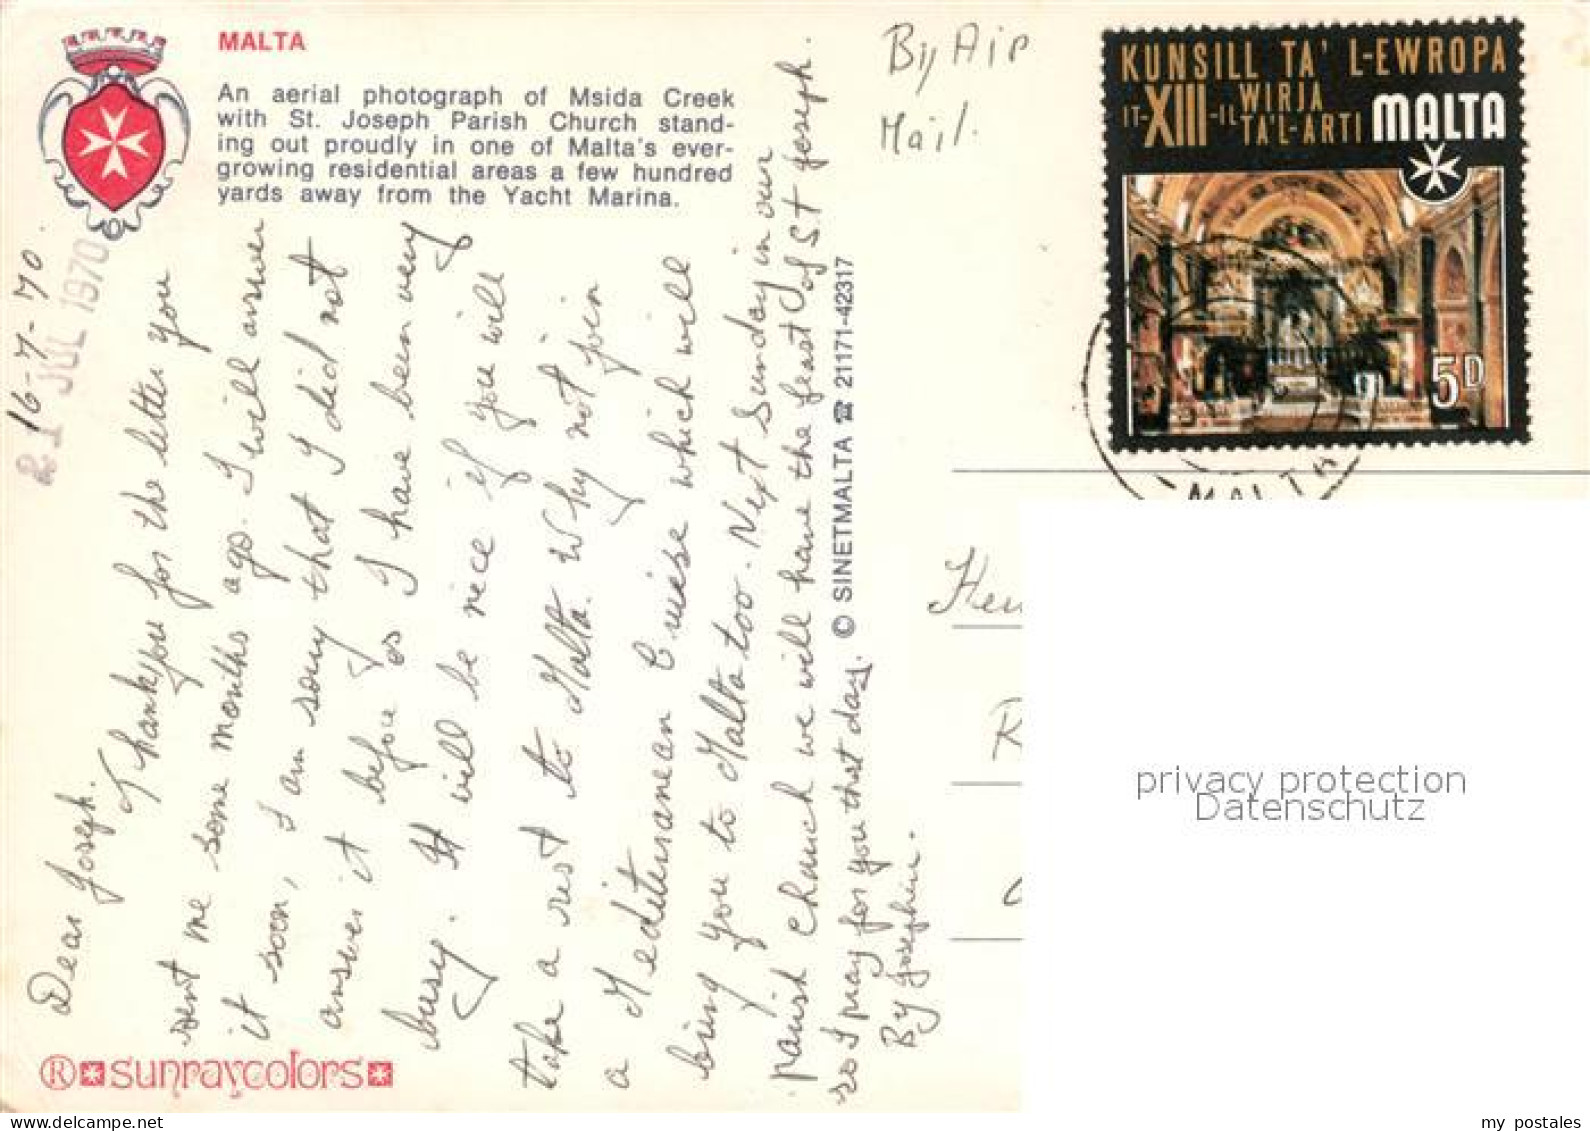 MALTA
An aerial photograph of Msida Creek
with St. Joseph Parish Church stand-
ing out proudly in one of Malta's ever-
growing residential areas a few hundred
yards away from the Yacht Marina.
16-7-70.
21 JUL 1970
Dear Joseph.
Thankyou for the letter you
sent me some months ago. I will answer
it soon, I am sorry that I did not
answer it before as I have been very
busy. It will be nice if you will
take a rest to Malta. Why not join
a Mediterranean Cruise which will
bring you to Malta too. Next Sunday in our
parish church we will have the feast of St Joseph.
so I pray for you that day.
By Josephine.
© SINETMALTA ☎ 21171-42317
® sunraycolors
By Air
Mail.
KUNSILL TA' L-EWROPA
IT-XIII-IL WIRJA
TA'L-ARTI MALTA
5D
MALTA
privacy protection
Datenschutz
my postales